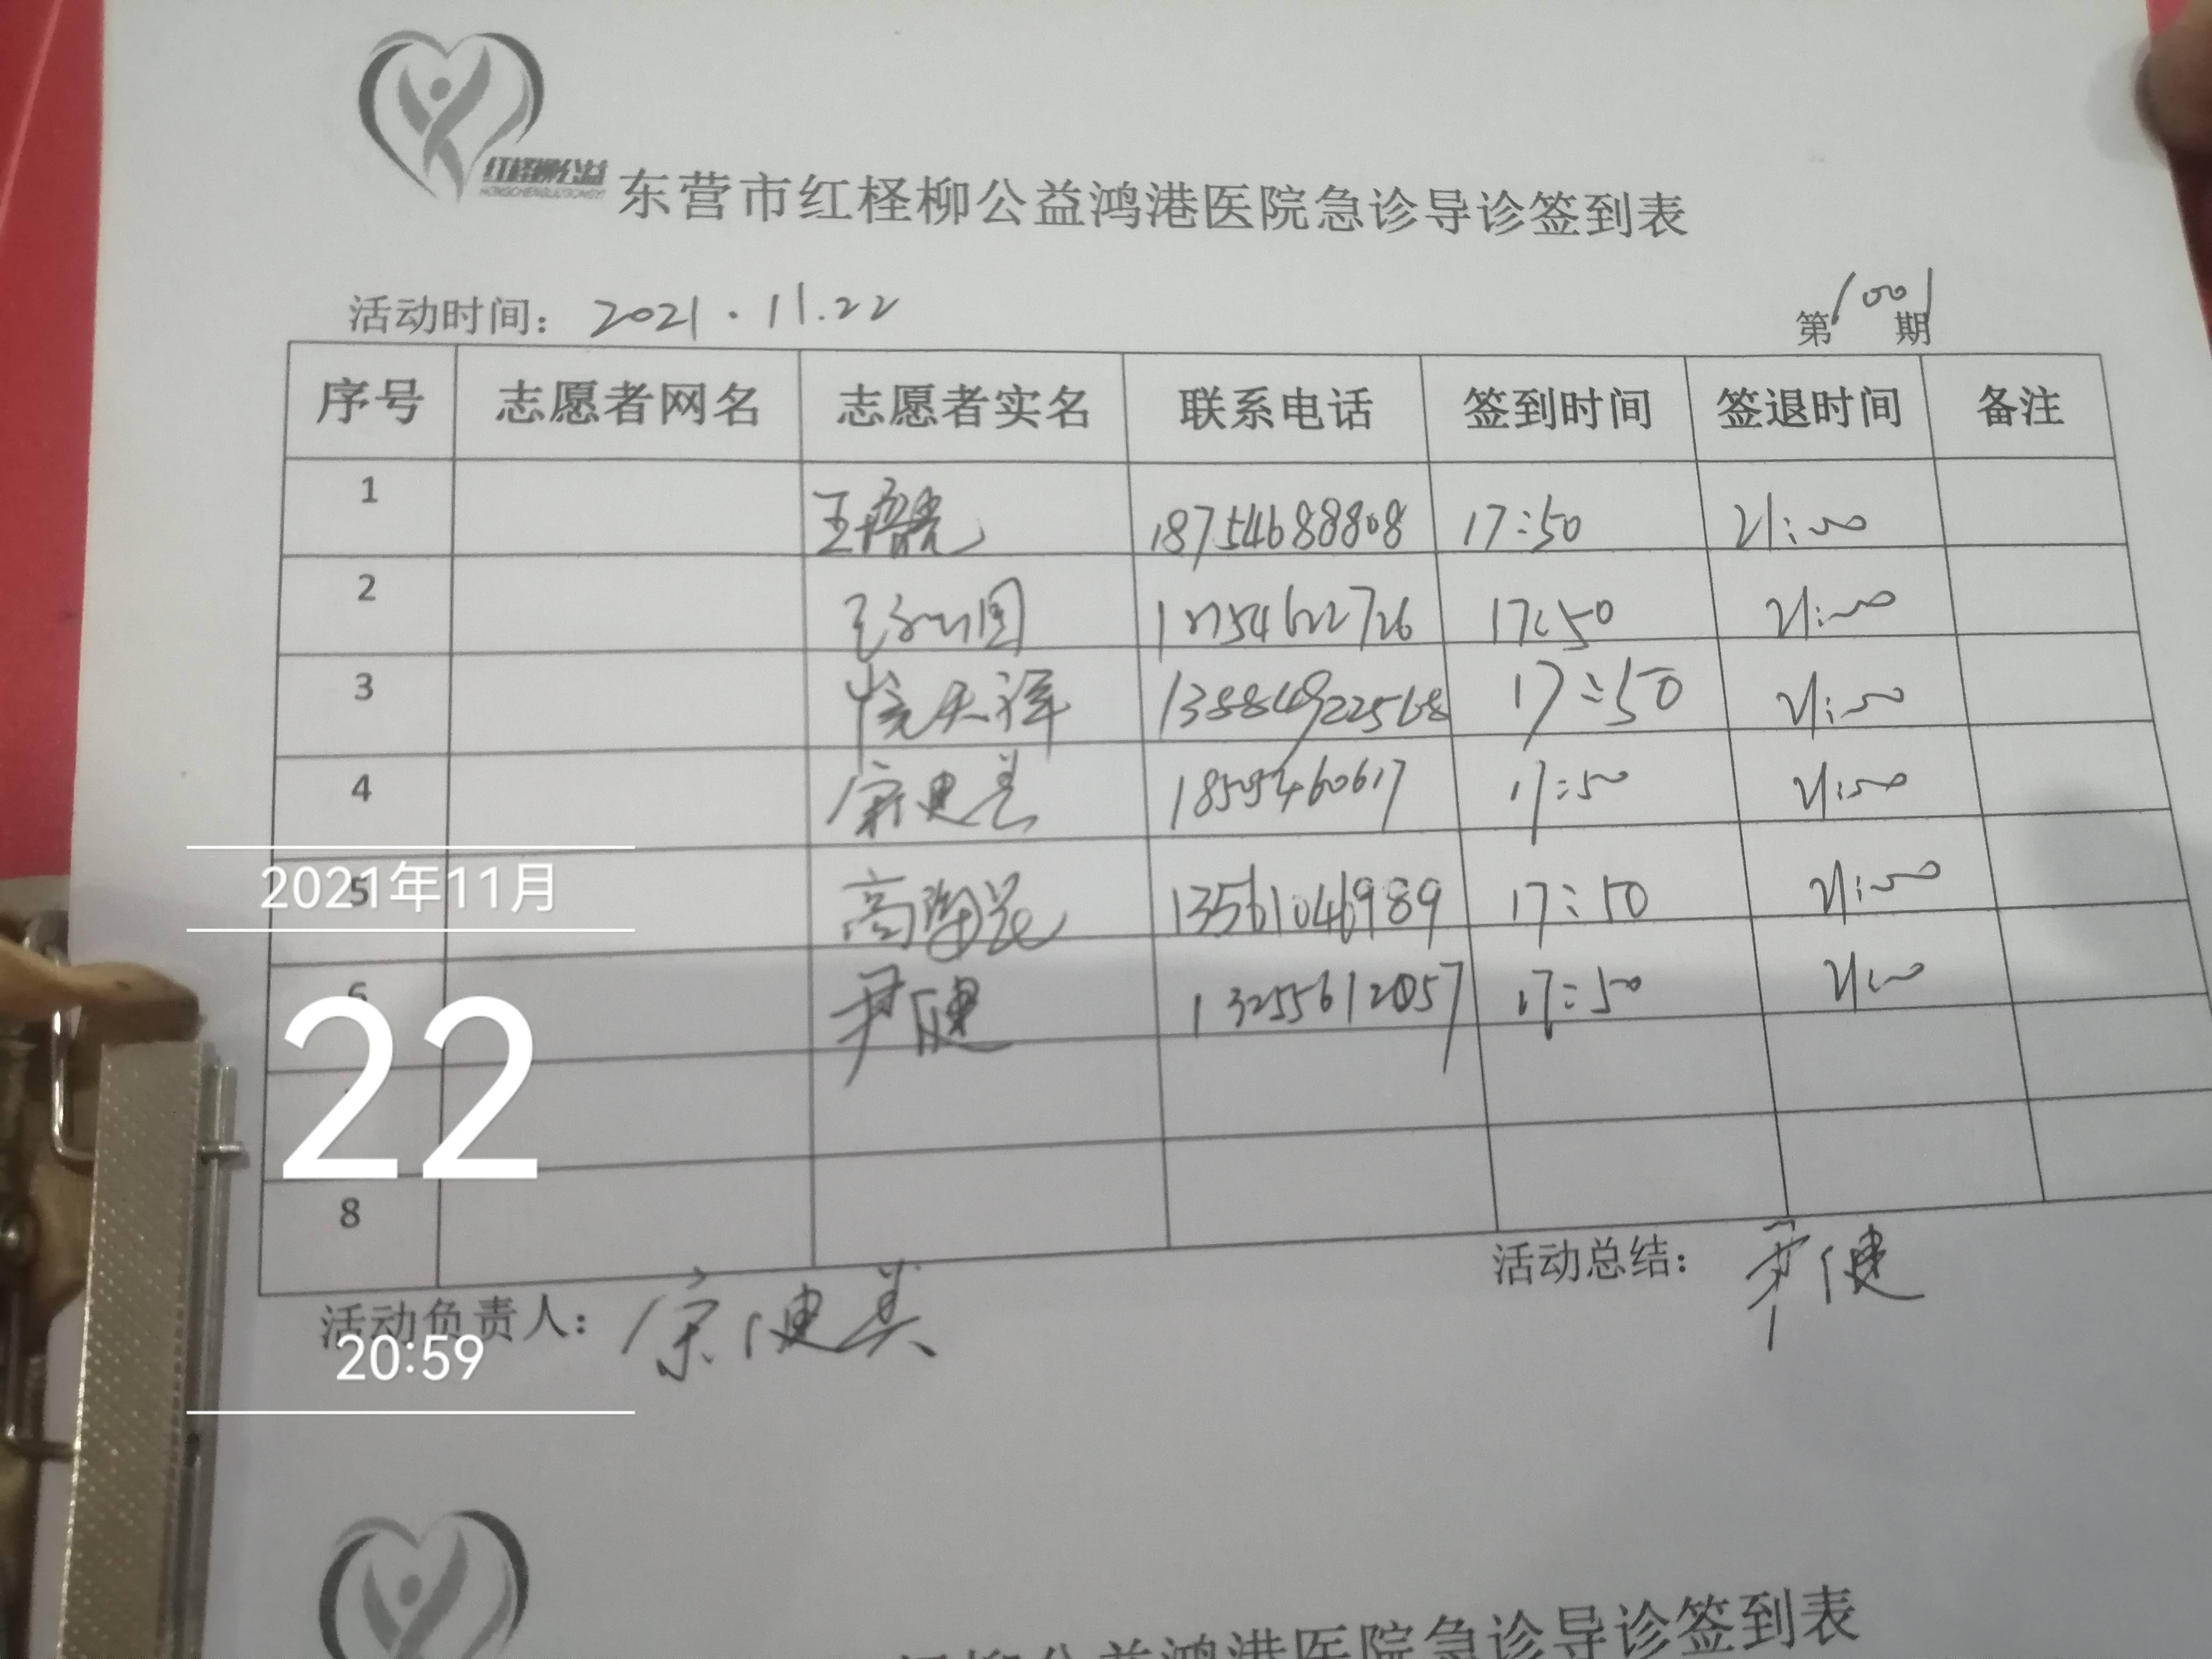 红柽柳公益
东营市红柽柳公益鸿港医院急诊导诊签到表
活动时间: 2021.11.22
第1001期
序号 志愿者网名 志愿者实名 联系电话 签到时间 签退时间 备注
1 18754688808 17:50 21:00
2 17:50 21:00
3 17:50 21:00
4 17:50 21:00
5 高 13561046989 17:50 21:00
6 尹健 13255612057 17:50 21:00
8
活动总结: 尹健
活动负责人:
2021年11月
22
20:59
柳公益鸿港医院急诊导诊签到表